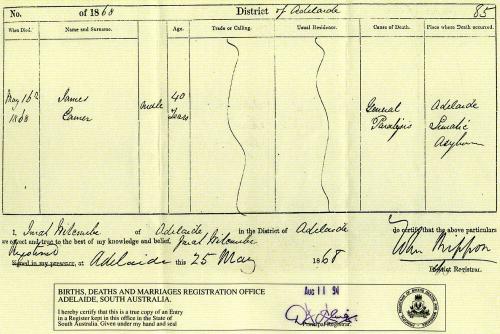 No. of 1868 District of Adelaide 85
When Died. Name and Surname. Age. Trade or Calling. Usual Residence. Cause of Death. Place where Death occurred.
May 16th James Male 40 General Adelaide
1868 Years Paralysis Lunatic
Asylum
I, of Adelaide in the District of Adelaide do certify that the above particulars
are correct and true to the best of my knowledge and belief,
Signed in my presence, at Adelaide this 25 May 1868
District Registrar.
BIRTHS, DEATHS AND MARRIAGES REGISTRATION OFFICE
ADELAIDE, SOUTH AUSTRALIA.
I hereby certify that this is a true copy of an Entry
in a Register kept in this office in the State of
South Australia. Given under my hand and seal
AUG 11 94
Principal Registrar.